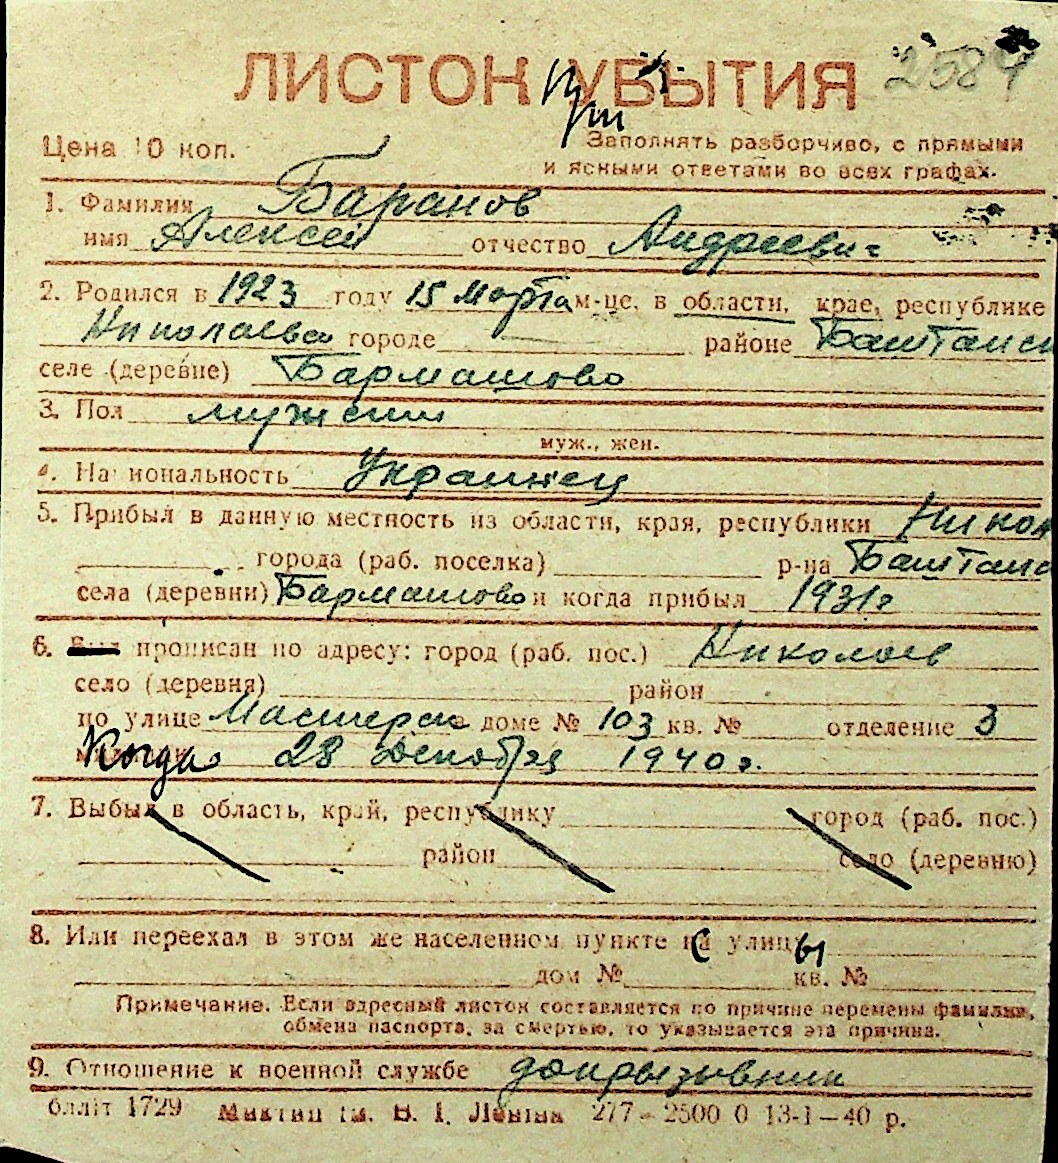 ЛИСТОК УБЫТИЯ 2584
При
Цена 10 коп. Заполнять разборчиво, с прямыми
и ясными ответами во всех графах.
1. Фамилия Баранов
имя Алексей отчество Андреевич
2. Родился в 1923 году 15 Марта м-це, в области, крае, республике
Николаева городе районе Баштанск
селе (деревне) Бармашово
3. Пол мужской
муж., жен.
4. Национальность Украинец
5. Прибыл в данную местность из области, края, республики Никол
города (раб. поселка) р-на Баштанс
села (деревни) Бармашово и когда прибыл 1931г
6. прописан по адресу: город (раб. пос.) Николаев
село (деревня) район
по улице Мастерск доме № 103 кв. № отделение 3
Когда 28 Декабря 1940г.
7. Выбыл в область, край, республику город (раб. пос.)
район село (деревню)
8. Или переехал в этом же населенном пункте с улицы
дом № кв. №
Примечание. Если адресный листок составляется по причине перемены фамилии,
обмена паспорта, за смертью, то указывается эта причина.
9. Отношение к военной службе допризывник
блліт 1729 ім. В. І. Леніна 277 - 2500 0 13-1-40 р.